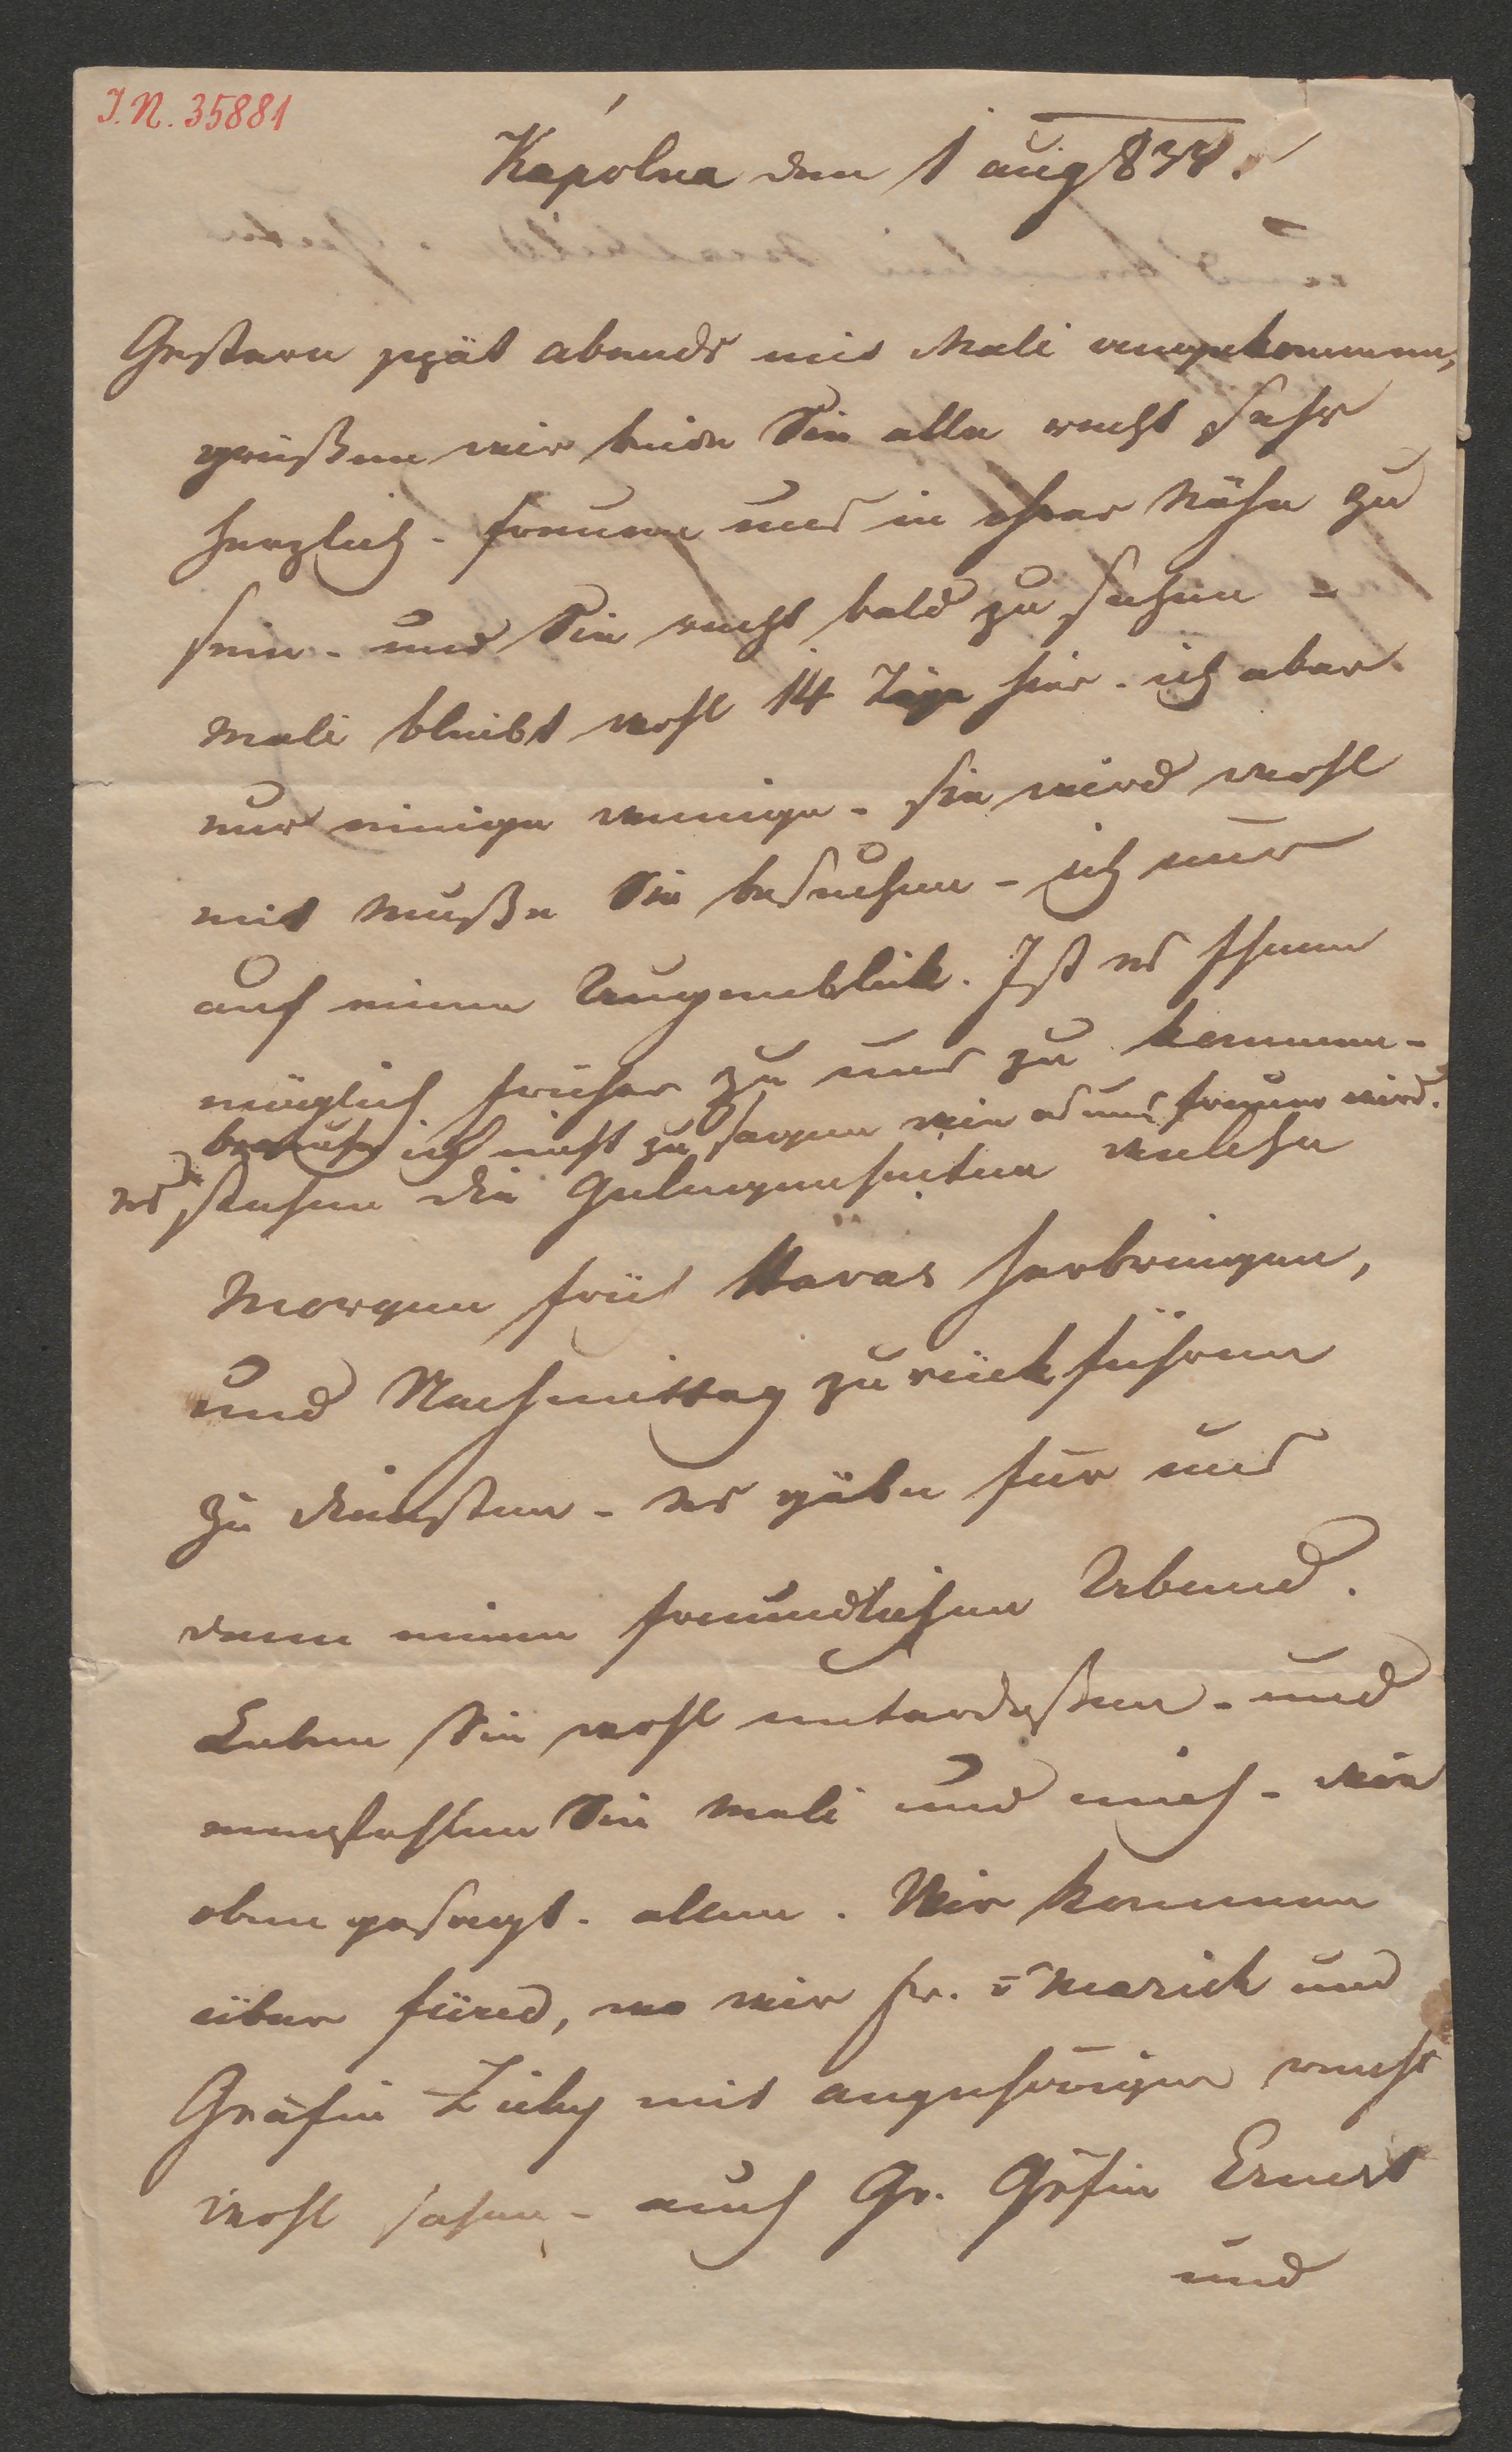 J.N. 35881
Kápolna den 1 aug 838.
Gestern spät abends mit Mali angekommen,
grüßen wir beide Sie alle recht sehr
herzlich - freuen uns in ihrer Nähe zu
sein - und Sie recht bald zu sehen -
Mali bleibt wohl 14 Täge hier - ich aber
nur einige wenige - sie wird wohl
mit Muße Sie besuchen - ich nur
auf einen Augenblick. Ist es Ihnen
möglich früher zu uns zu kommen -
brauche ich nicht zu sagen wie es uns freuen wird.
es stehen die Gelegenheiten welche
Morgen früh herbringen,
und Nachmittag zurückführen
zu diensten - es gäbe für uns
dann einen freundlichen Abend.
Leben Sie wohl unterdeßen - und
empfehlen Sie Mali und mich - wie
oben gesagt - allen. Wir kommen
über füred, wo wir fr. v Marich und
Gräfin Zichy mit angehörigen recht
wohl sahen - auch Gr. Gräfin Ernest
und